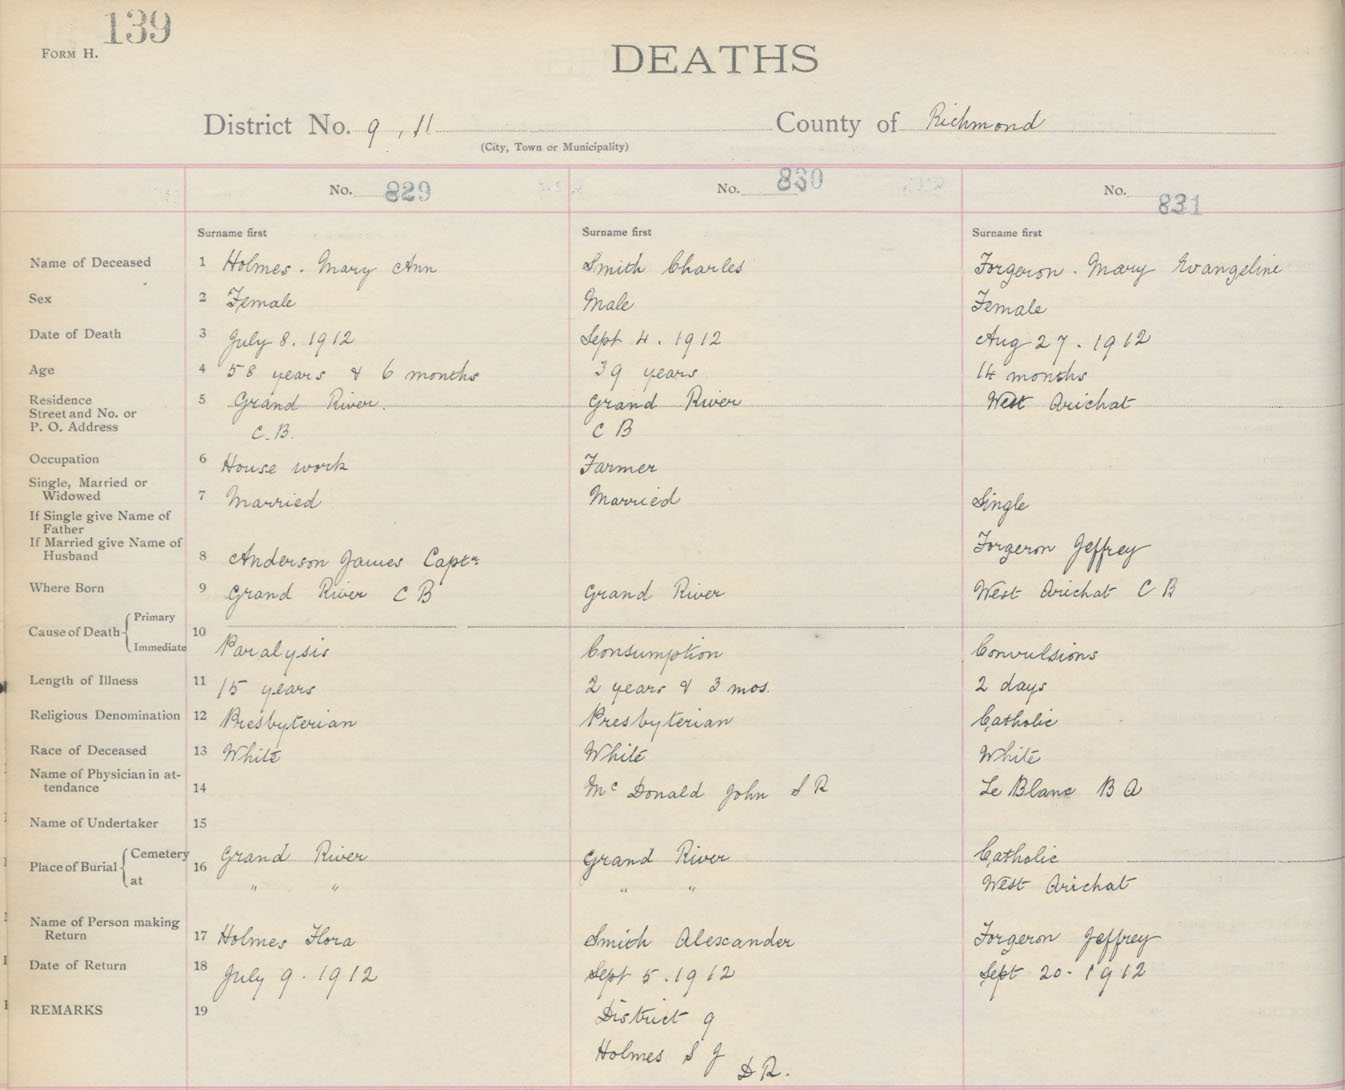 139
FORM H.
DEATHS
District No. 9, 11 County of Richmond
(City, Town or Municipality)
No. 829 No. 830 No. 831
Surname first Surname first Surname first
Name of Deceased 1 Holmes. Mary Ann Smith Charles Forgeron. Mary Evangeline
Sex 2 Female Male Female
Date of Death 3 July 8. 1912 Sept 4. 1912 Aug 27. 1912
Age 4 58 years & 6 months 39 years 14 months
Residence 5 Grand River. Grand River West Arichat
Street and No. or
P. O. Address C.B. C B
Occupation 6 House work Farmer
Single, Married or
Widowed 7 Married Married Single
If Single give Name of
Father
If Married give Name of
Husband 8 Anderson James Captn Forgeron Jeffrey
Where Born 9 Grand River C B Grand River West Arichat C B
Cause of Death Primary
10
Immediate Paralysis Consumption Convulsions
Length of Illness 11 15 years 2 years & 3 mos. 2 days
Religious Denomination 12 Presbyterian Presbyterian Catholic
Race of Deceased 13 White White White
Name of Physician in at-
tendance 14 Mc Donald John S R Le Blanc B A
Name of Undertaker 15
Place of Burial Cemetery 16 Grand River Grand River Catholic
at " " " " West Arichat
Name of Person making
Return 17 Holmes Flora Smith Alexander Forgeron Jeffrey
Date of Return 18 July 9. 1912 Sept 5. 1912 Sept 20. 1912
REMARKS 19 District 9
Holmes S J
D R.